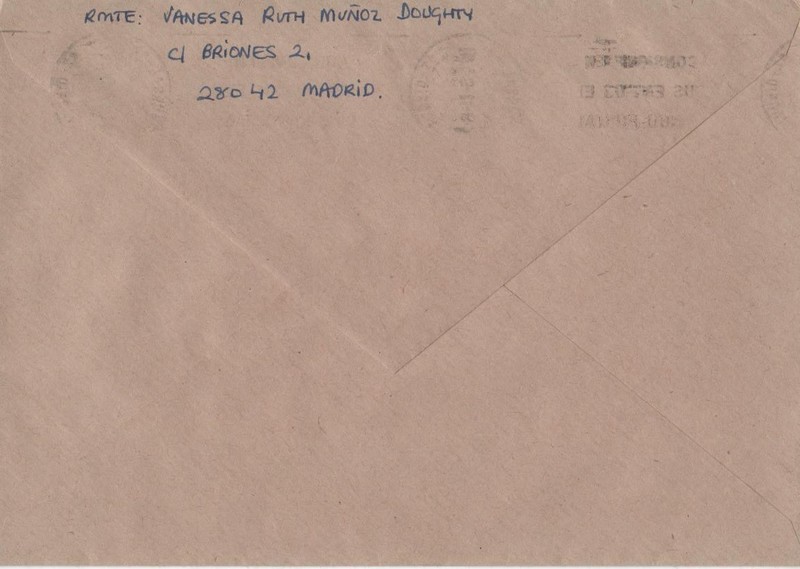 RMTE: VANESSA RUTH MUÑOZ DOUGHTY
C/ BRIONES 2,
28042 MADRID.